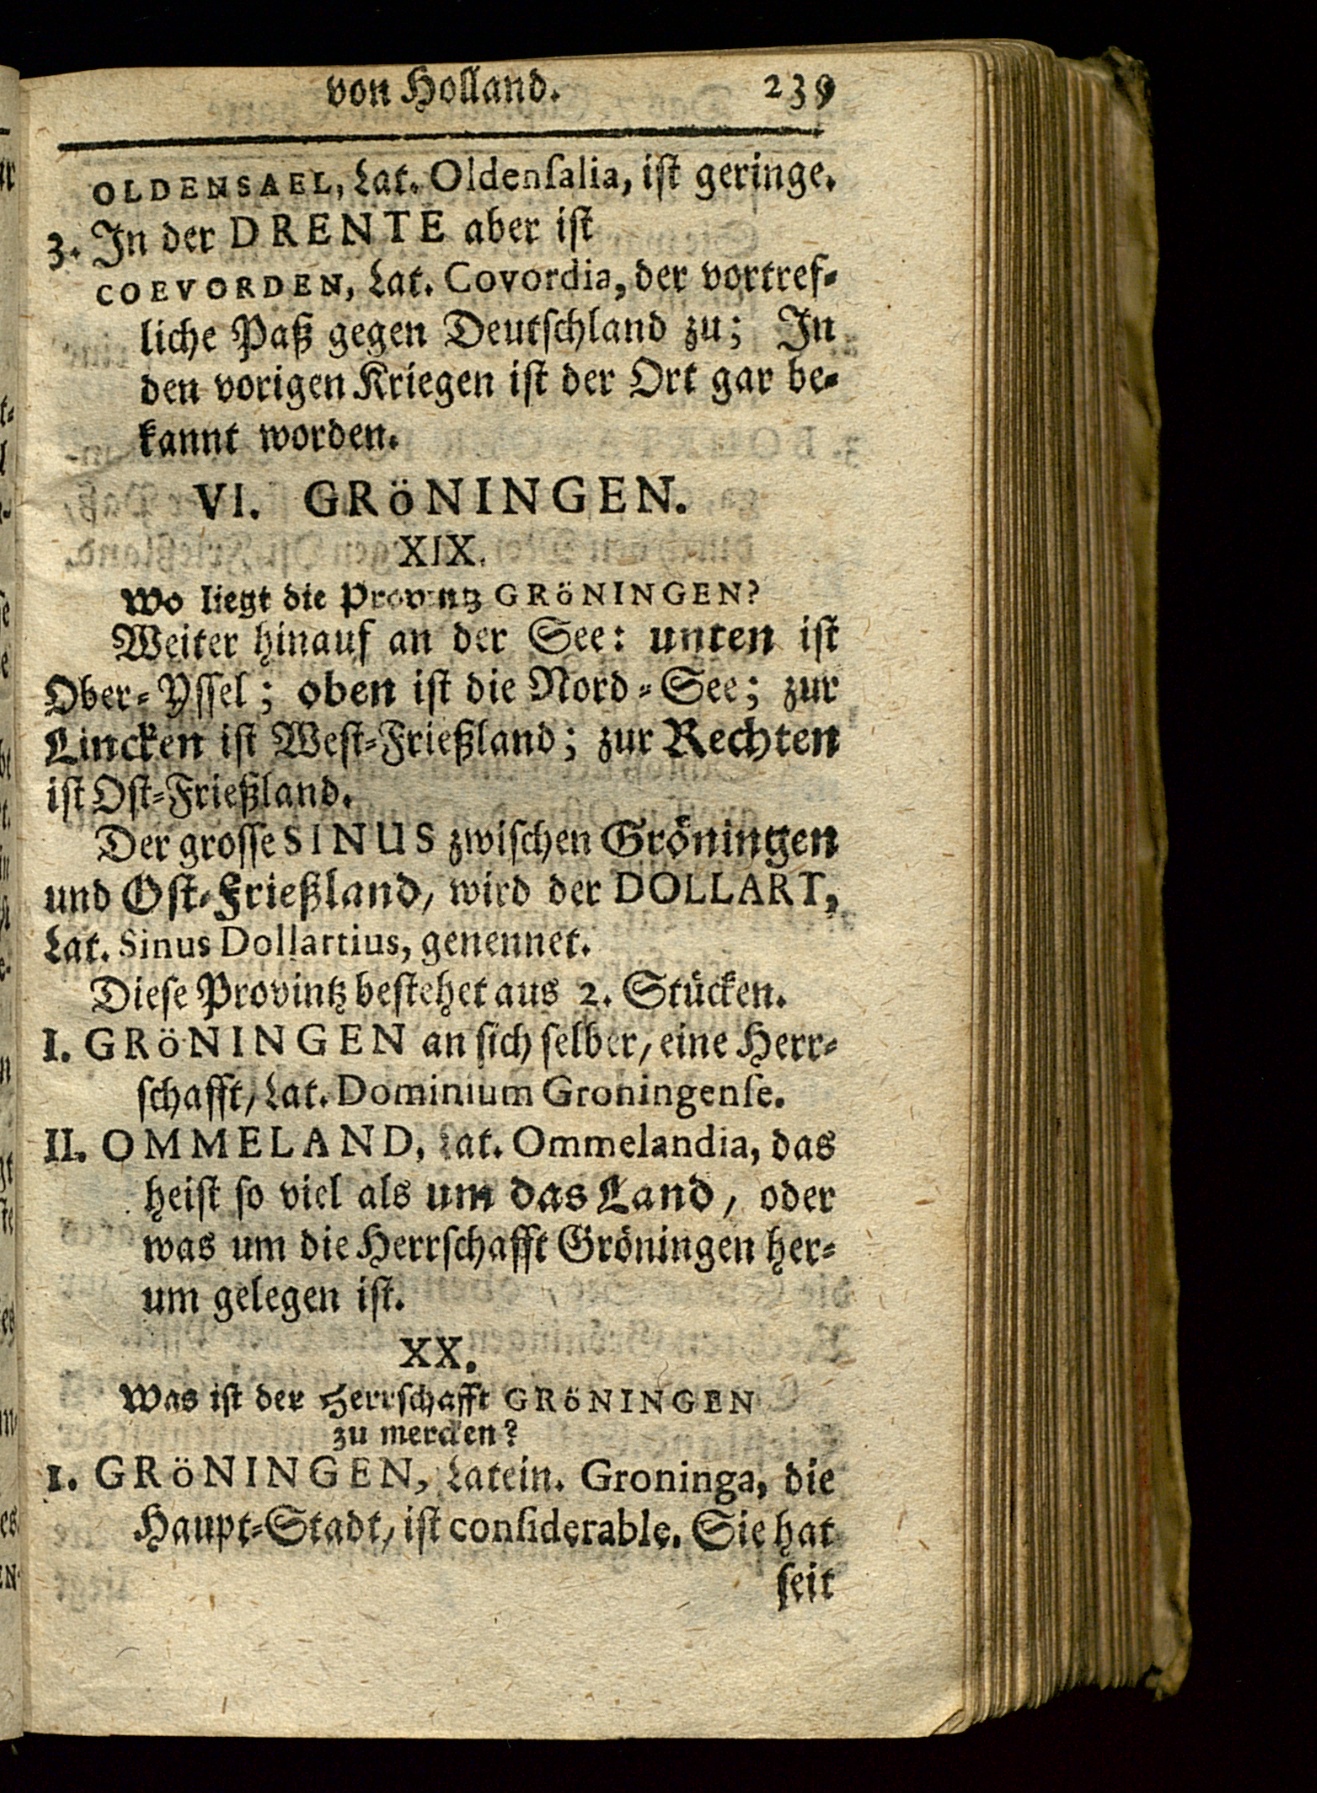 von Holland. 239
OLDENSAEL, Lat. Oldenſalia, iſt geringe.
3. In der DRENTE aber iſt
COEVORDEN, Lat. Covordia, der vortref-
liche Paß gegen Deutſchland zu; In
den vorigen Kriegen iſt der Ort gar be-
kannt worden.
VI. GRöNINGEN.
XIX.
Wo liegt die Provintz GRöNINGEN?
Weiter hinauf an der See: unten iſt
Ober-Yſſel; oben iſt die Nord-See; zur
Lincken iſt Weſt-Frießland; zur Rechten
iſt Oſt-Frießland.
Der groſſe SINUS zwiſchen Gröningen
und Oſt-Frießland/ wird der DOLLART,
Lat. Sinus Dollartius, genennet.
Dieſe Provintz beſtehet aus 2. Stücken.
I. GRöNINGEN an ſich ſelber/ eine Herr-
ſchafft/ Lat. Dominium Groningenſe.
II. OMMELAND, Lat. Ommelandia, das
heiſt ſo viel als um das Land/ oder
was um die Herrſchafft Gröningen her-
um gelegen iſt.
XX.
Was iſt der Herrſchafft GRöNINGEN
zu mercken?
1. GRöNINGEN, Latein. Groninga, die
Haupt-Stadt/ iſt conſiderable. Sie hat
ſeit